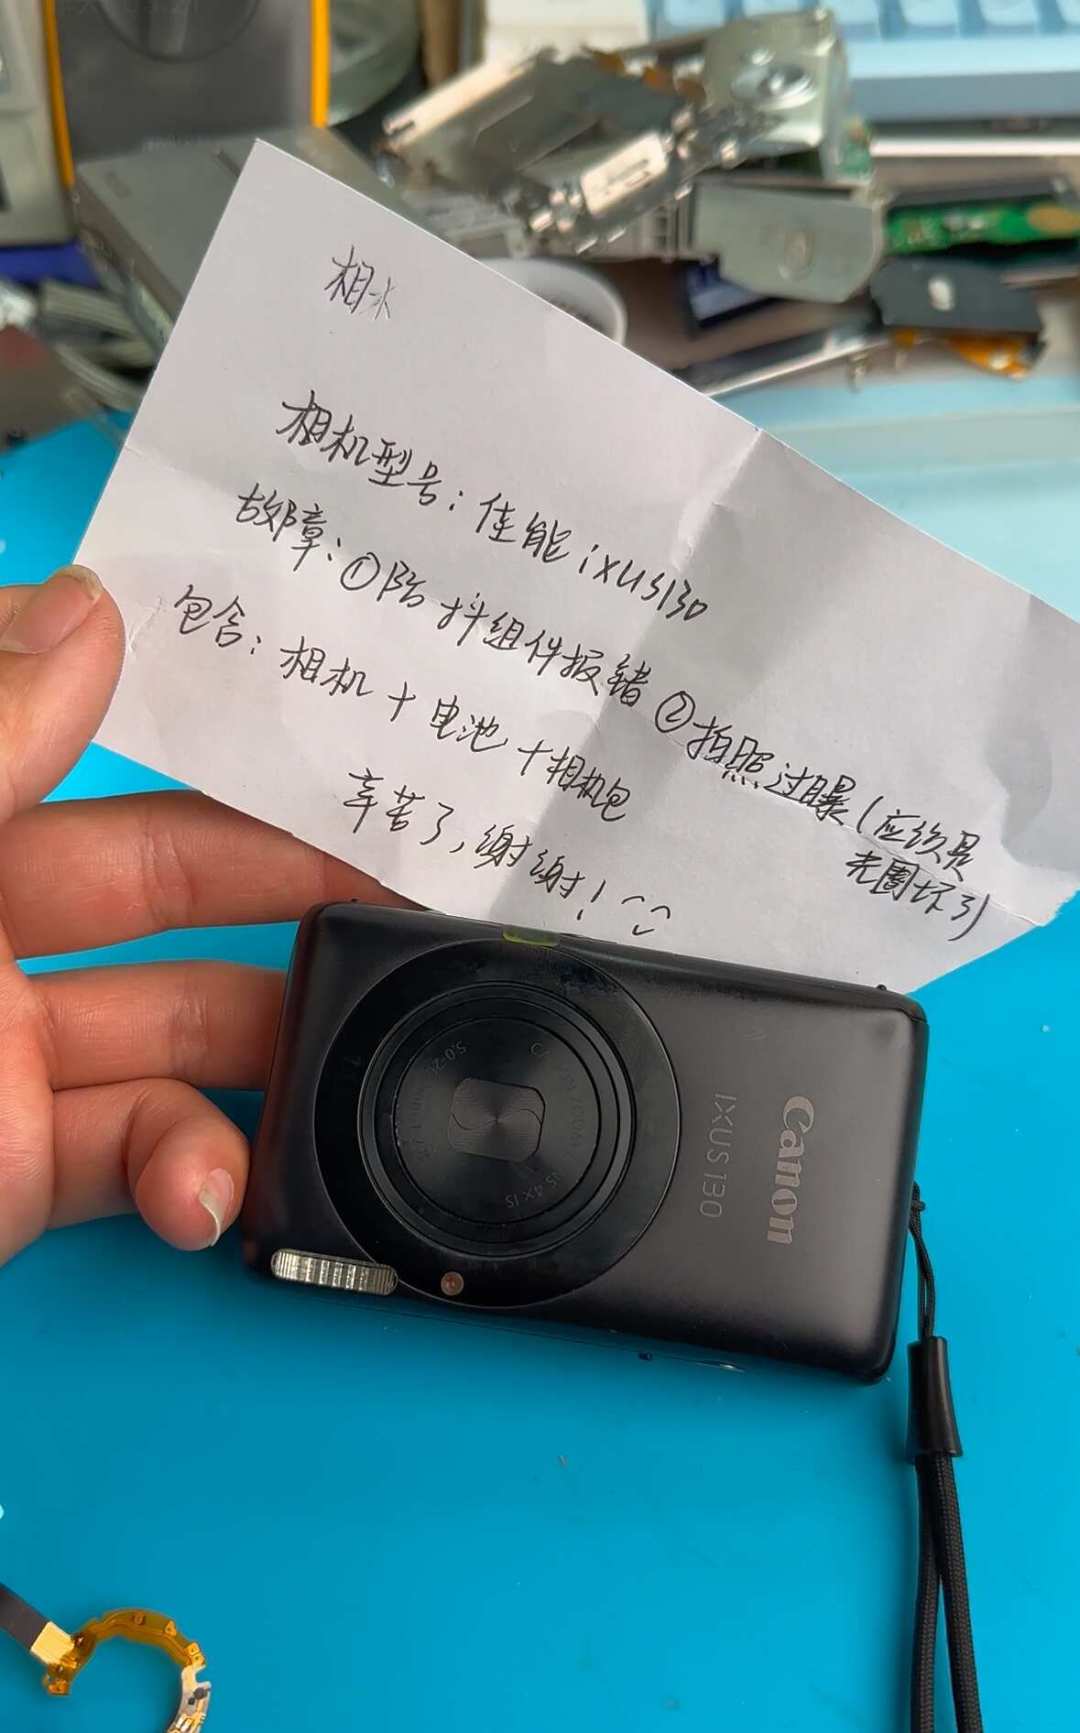 相
相机型号：佳能ixus130
故障：①防抖组件报错 ②拍照过曝(应该是
光圈坏了)
包含：相机+电池+相机包
辛苦了，谢谢！
Canon
IXUS 130
4X IS